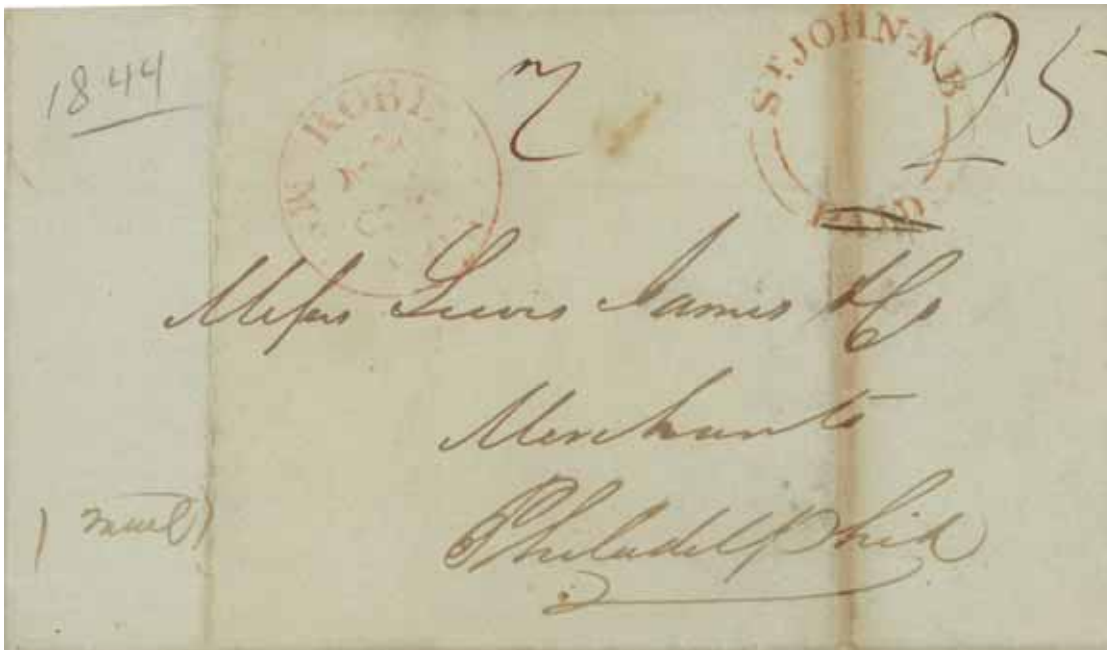 1844
7
ST. JOHN-N.B
PAID
25
ROBB
Messrs Lewis James & Co
Merchants
Philadelphia